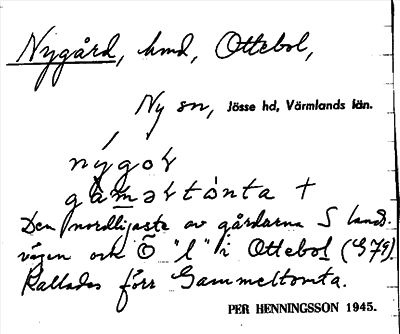 Nygård, hmd, Ottebol,
Ny sn, Jösse hd, Värmlands län.
nýgoṛ
gàmaltònta +
Den nordligaste av gårdarna S lands-
vägen och Ö "l" i Ottebol (G79).
Kallades förr Gammeltomta.
PER HENNINGSSON 1945.